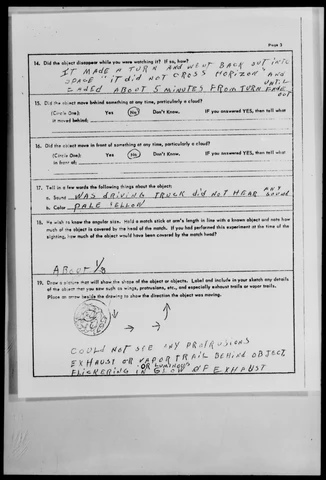 Page 3
14. Did the object disappear while you were watching it? If so, how?
IT MADE A TURN AND WENT BACK OUT INTO
SPACE "IT DID NOT CROSS HORIZON" AND
ABOUT 5 MINUTES FROM TURN FADE
OUT
15. Did the object move behind something at any time, particularly a cloud?
(Circle One): Yes No Don't Know. IF you answered YES, then tell what
it moved behind:
16. Did the object move in front of something at any time, particularly a cloud?
(Circle One): Yes No Don't Know. IF you answered YES, then tell what
in front of:
17. Tell in a few words the following things about the object:
a. Sound WAS DRIVING TRUCK DID NOT HEAR ANY SOUND
b. Color PALE YELLOW
18. We wish to know the angular size. Hold a match stick at arm's length in line with a known object and note how
much of the object is covered by the head of the match. If you had performed this experiment at the time of the
sighting, how much of the object would have been covered by the match head?
ABOUT 1/8
19. Draw a picture that will show the shape of the object or objects. Label and include in your sketch any details
of the object that you saw such as wings, protrusions, etc., and especially exhaust trails or vapor trails.
Place an arrow beside the drawing to show the direction the object was moving.
COULD NOT SEE ANY PROTRUSIONS
EXHAUST OR VAPOR TRAIL BEHIND OBJECT,
OR LUMINOUS
FLICKERING IN GLOW OF EXHAUST